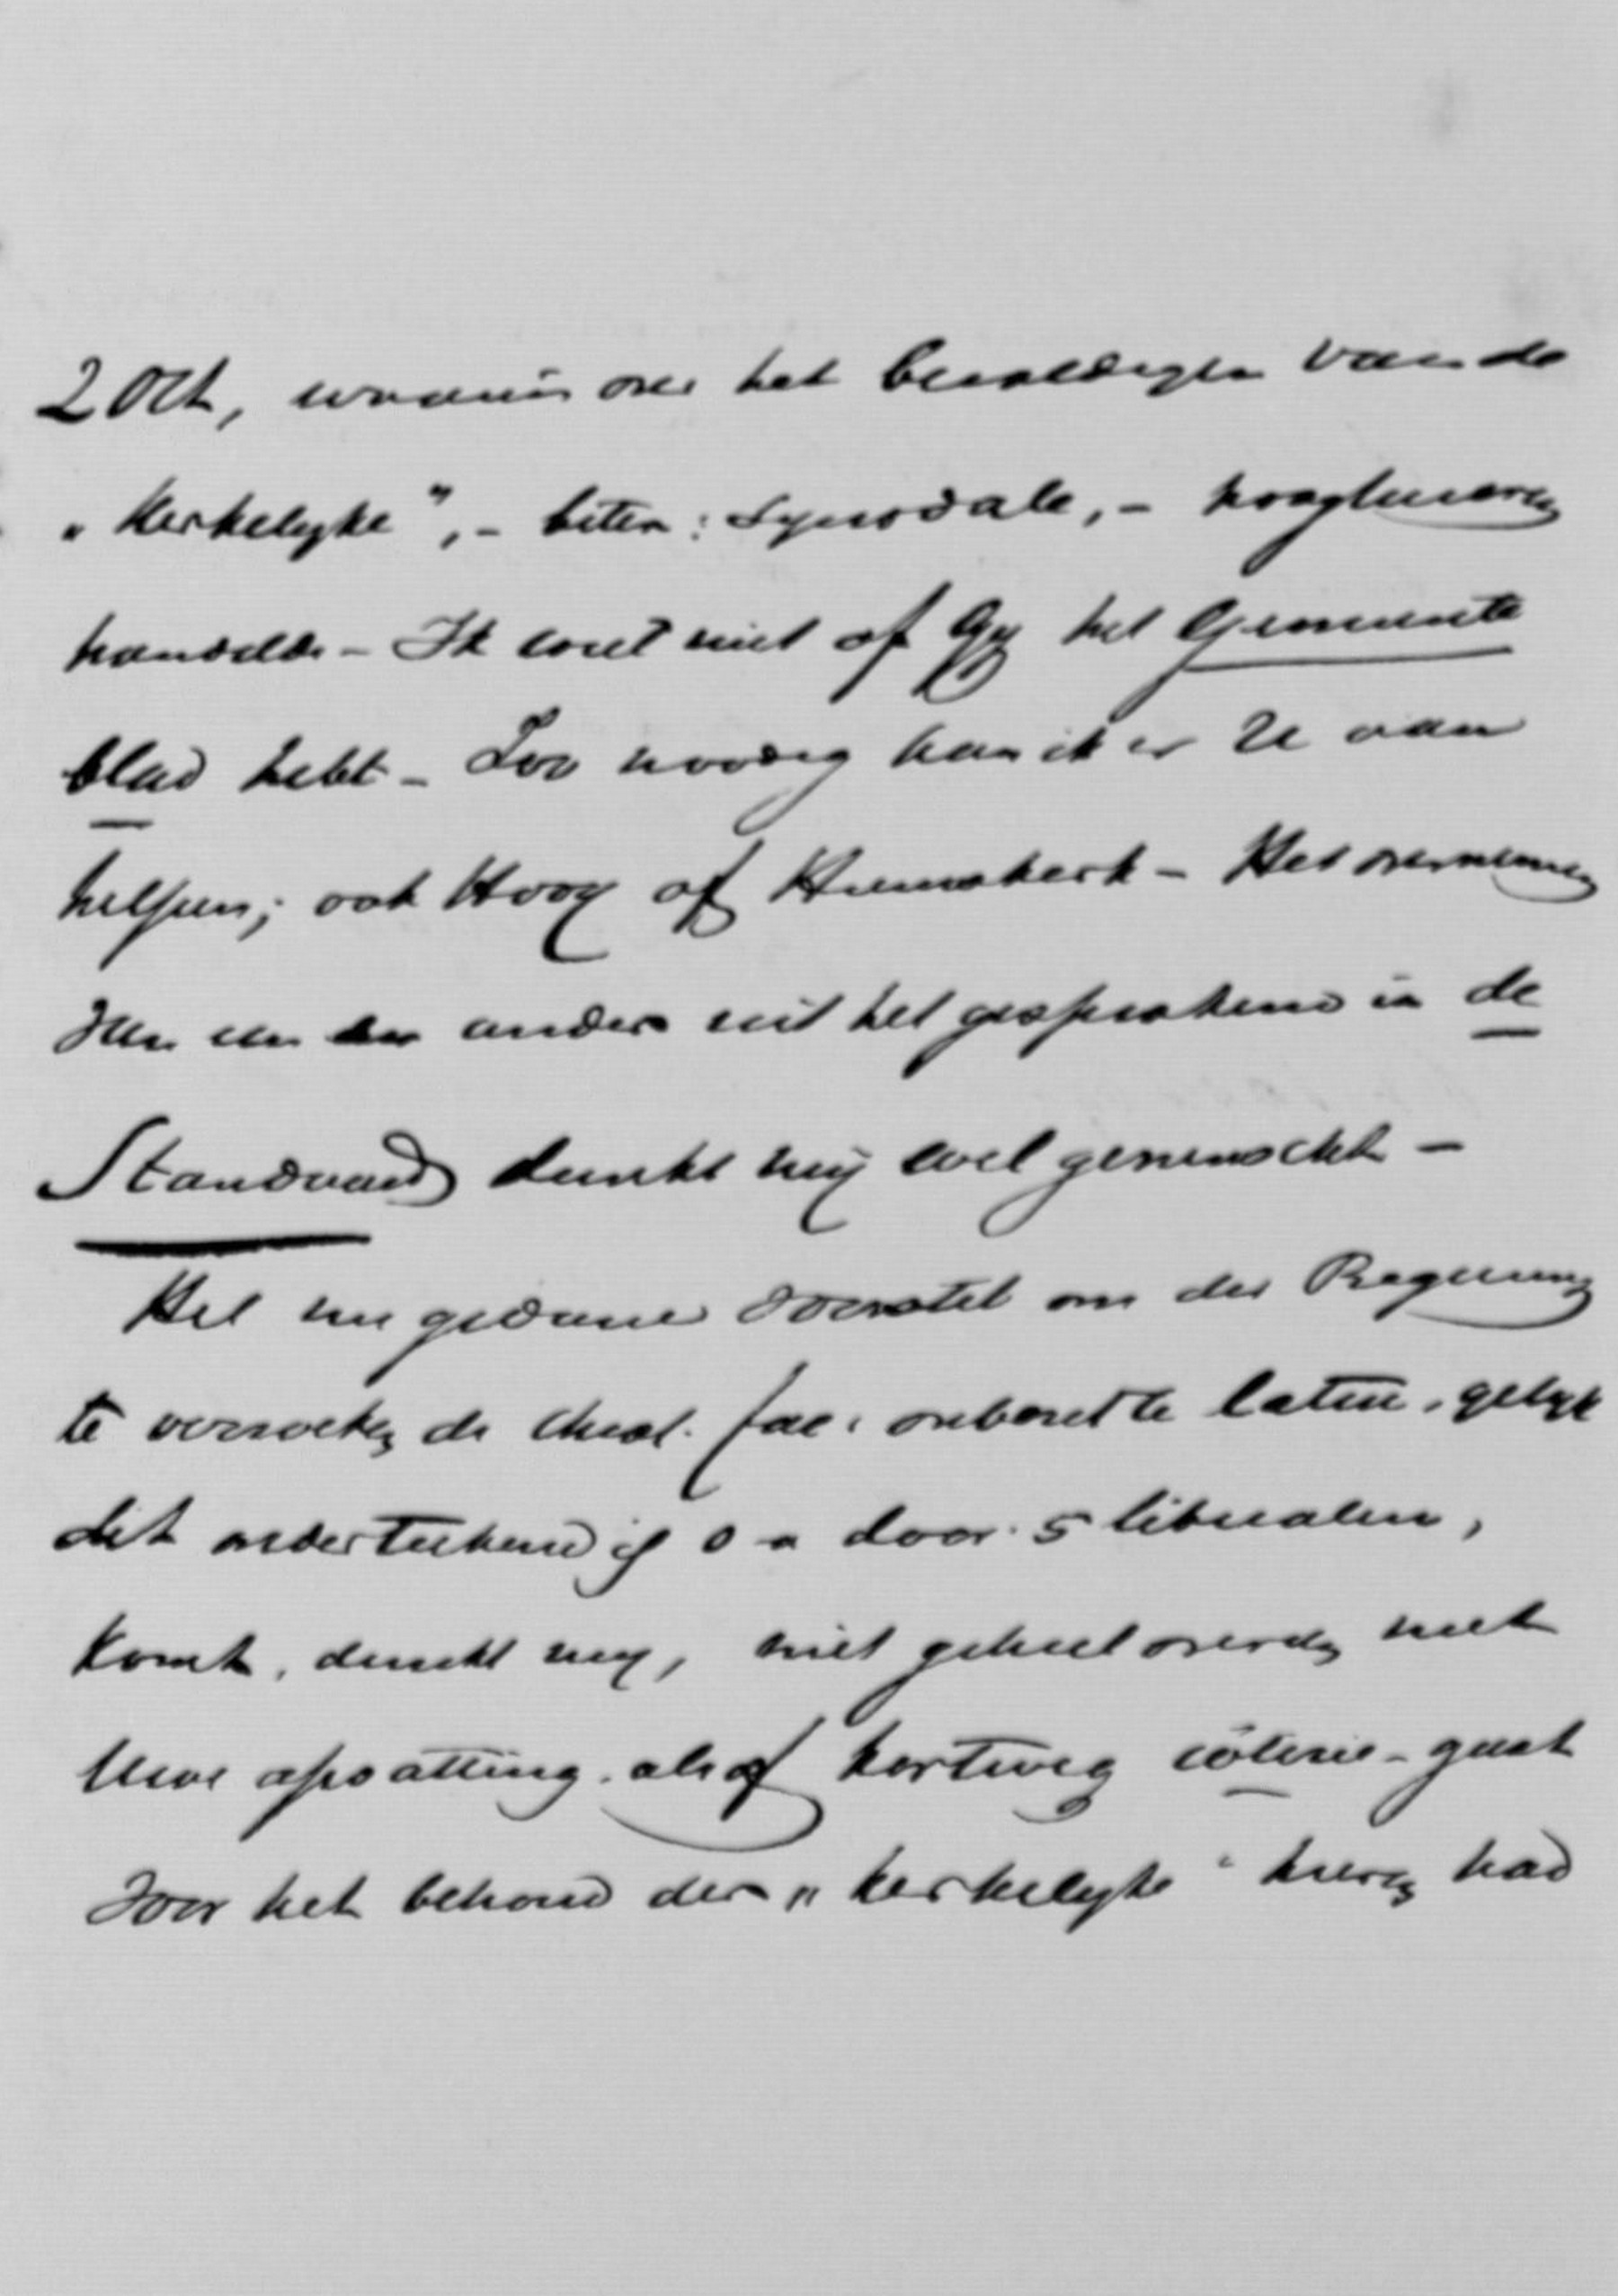 2 Oct, waarin over het bezoldigen van de
"Kerkelyke", - beter: Synodale, - hoogleeraren
handelde - Ik weet niet of Gy het Gemeente
blad hebt - Zoo noodig kan ik er U aan
helpen; ook Hoog of Heemskerk - Het overnemen
van een en ander uit het gesprokene in de
Standaard dunkt my wel gewenscht -
Het nu gedane voorstel om der Regeering
te verzoeken de theol. fac. onbezet te laten, gelyk
dit onderteekend is o a door 5 liberalen,
komt, dunkt my, niet geheel overeen met
Uwe opvatting, alsof kortweg coterie-geest
voor het behoud der "kerkelyke" hierin had